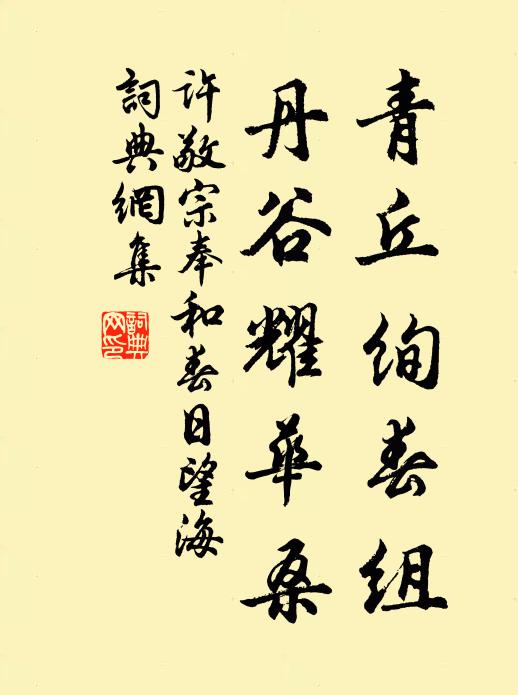 青丘绚春組
丹谷耀華桑
許敬宗奉和春日望海
詞典網集
詞典
网印